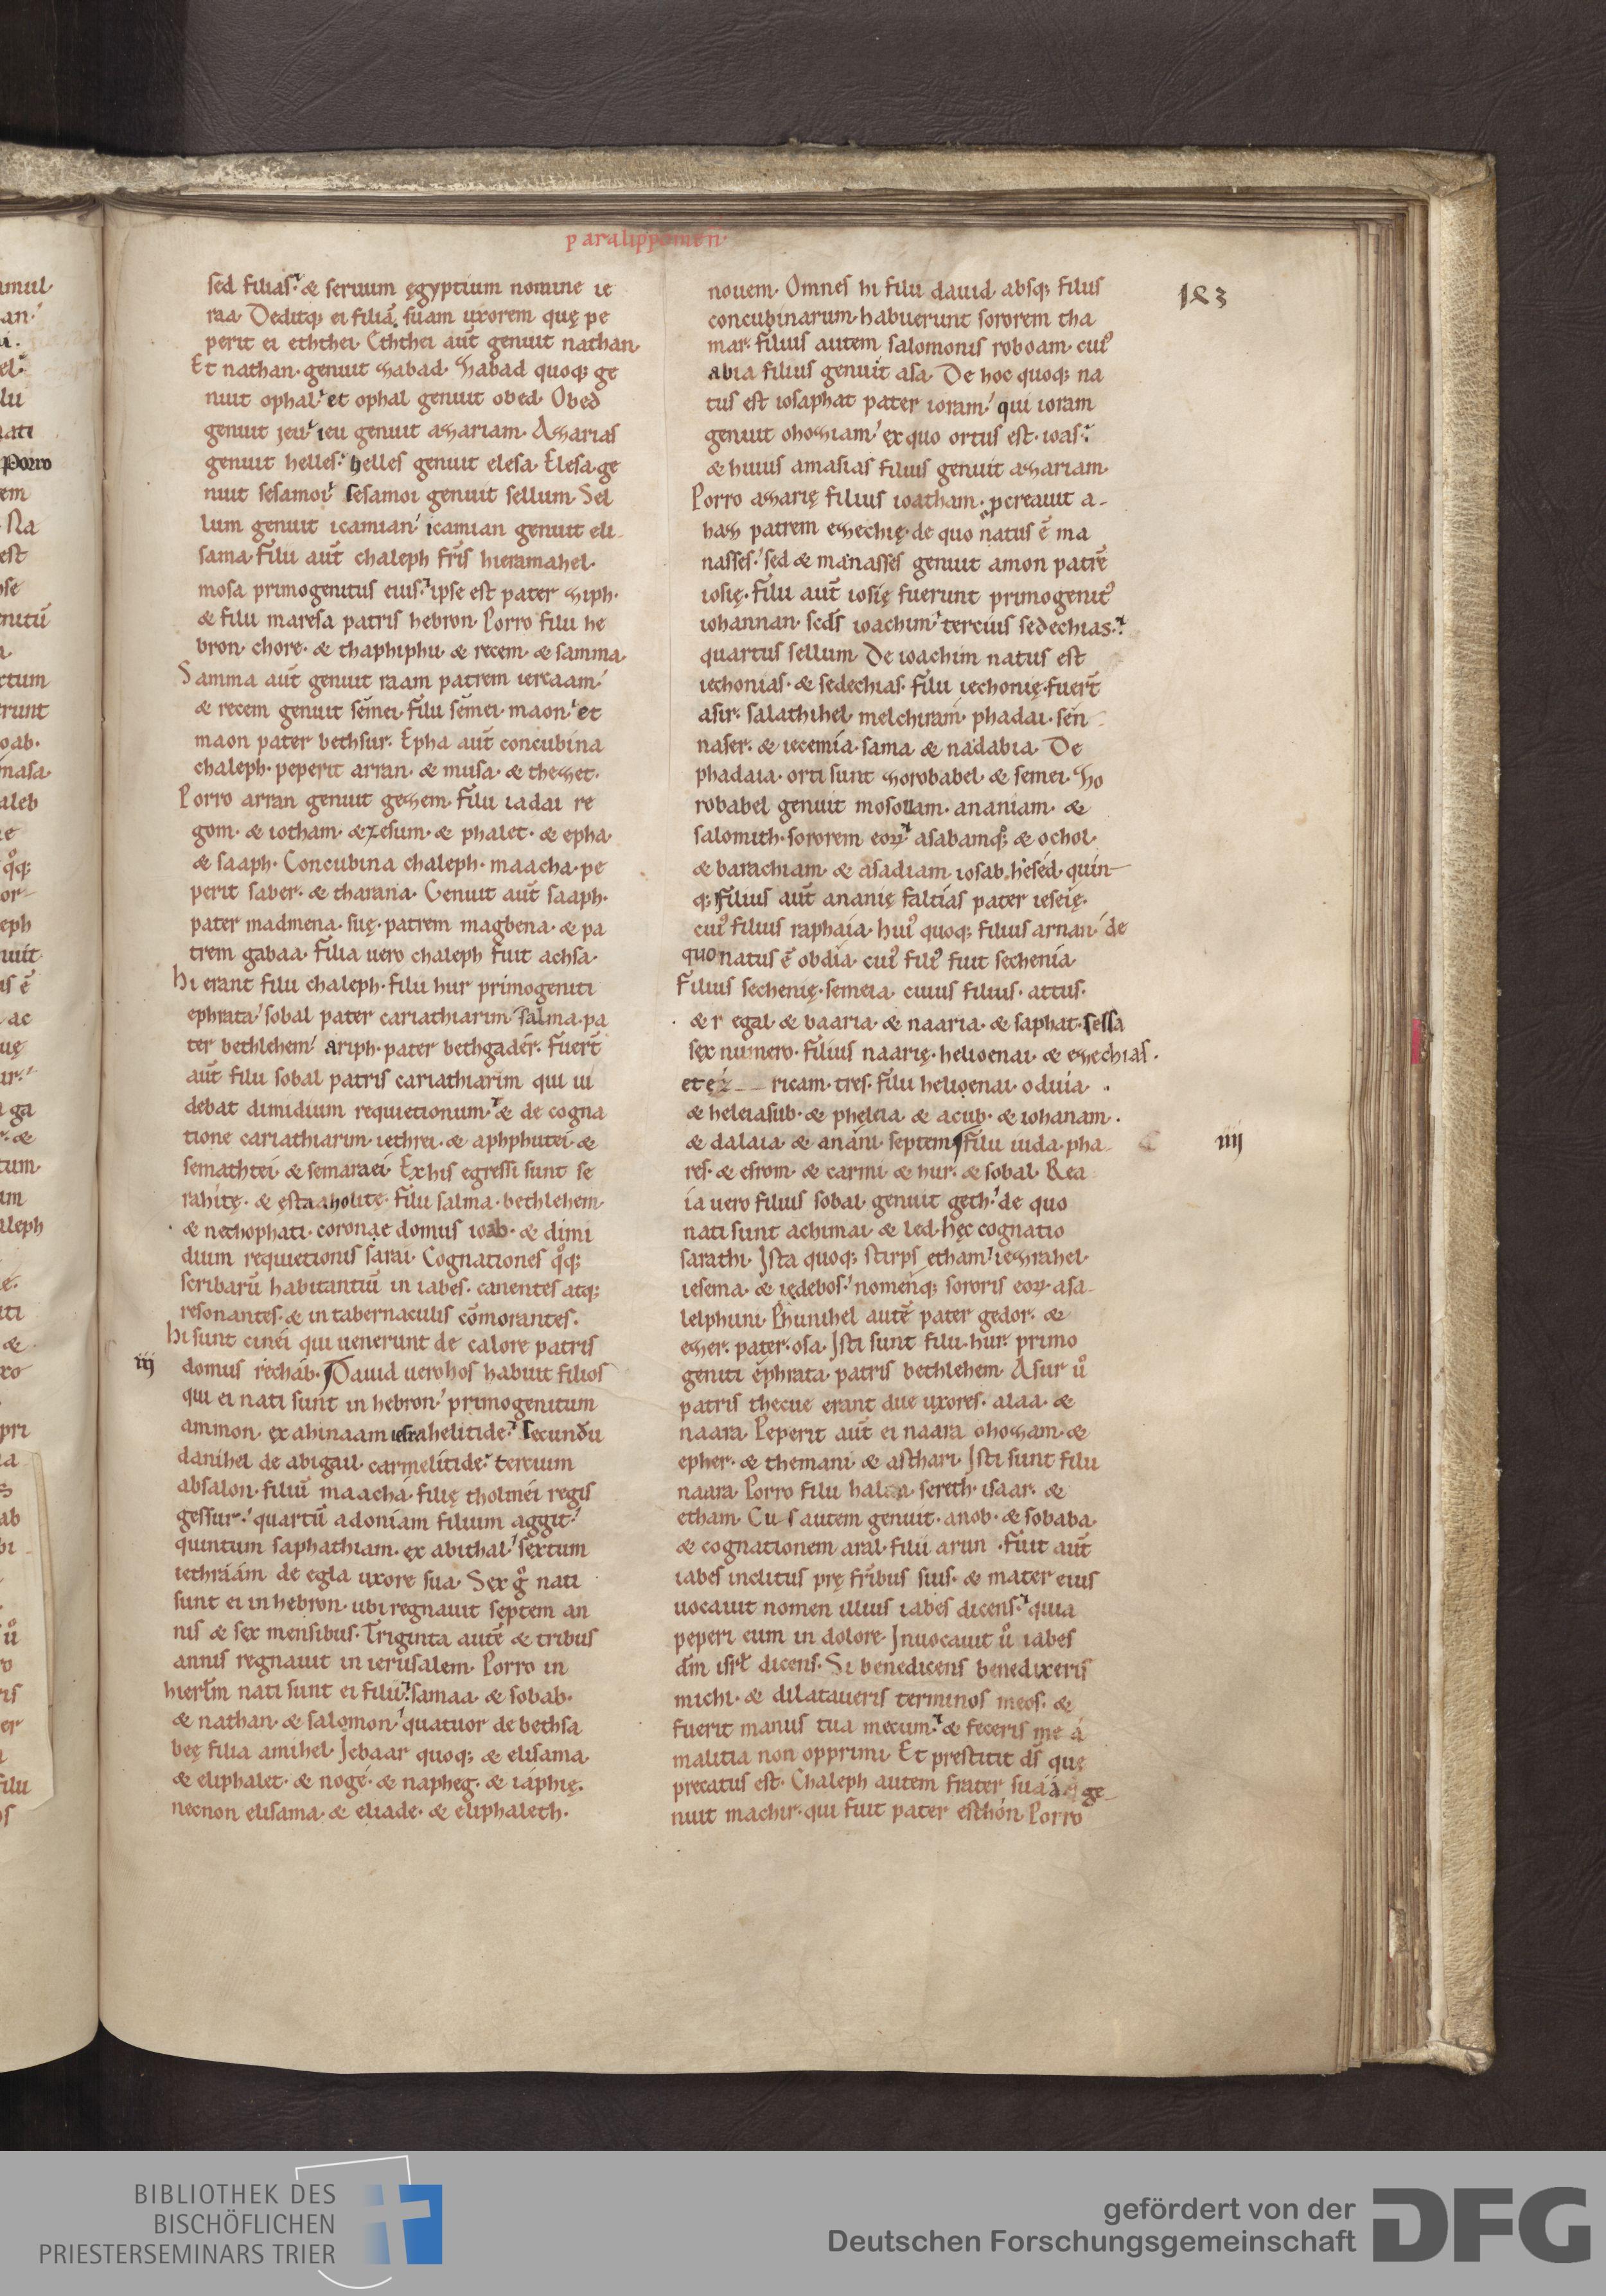 paralippomen̄·
183
sed filias·& seruum ęgyptium nomine ie
raa· Deditq; ei filiā suam uxorem quę pe
perit ei eththei· Eththei aūt genuit nathan·
Et nathan· genuit zabad· Zabad quoq; ge
nuit ophal· et ophal genuit obed· Obed
genuit jeu· ieu genuit azariam· Azarias
genuit helles· helles genuit elesa· Elesa ge
nuit sesamoi· sesamoi genuit sellum· Sel
lum genuit icamian· icamian genuit eli
sama· filii aūt chaleph fr̄is hieramahel·
mosa primogenitus eius· ipse est pater ziph·
& filii maresa patris hebron· Porro filii he
bron· chore· & thaphiphu· & recem· & samma·
Samma aūt genuit raam patrem iercaam·
& recem genuit semei· filii semei· maon· et
maon pater bethsur· Epha aūt concubina
chaleph· peperit arran· & musa· & thezet·
Porro arran genuit gezem· filii iadai re
gom· & iotham· & zesum· & phalet· & epha·
& saaph· Concubina chaleph· maacha· pe
perit saber· & tharana· Genuit aūt saaph·
pater madmena· suę· patrem magbena· & pa
trem gabaa· filia uero chaleph fuit achsa·
hi erant filii chaleph· filii hur primogeniti
ephrata· sobal pater cariathiarim· salma· pa
ter bethlehem· ariph· pater bethgader· fuer̄t
aūt filii sobal patris cariathiarim qui ui
debat dimidium requietionum· & de cogna
tione cariathiarim· iethrei· & aphphutei· &
semathtei· & semaraei· Ex his egressi sunt se
rahitę· & estaaholitę· filii salma· bethlehem·
& nethophati· coronae domus ioab· & dimi
dium requietionis sarai· Cognationes qͦq;
scribarū habitantiū in iabes· canentes atq;
resonantes· & in tabernaculis cōmorantes·
hi sunt cinei qui uenerunt de calore patris
iij
domus rechab· Dauid uero hos habuit filios
qui ei nati sunt in hebron· primogenitum
ammon· ex ahinaam iesrahelitide· secundū
danihel de abigail carmelitide· tercium
absalon· filiū maacha· filię tholmei regis
gessur· quartū adoniam filium aggit·
quintum saphathiam· ex abithal· sextum
iethraam de egla uxore sua· Sex gͦ nati
sunt ei in hebron· ubi regnauit septem an
nis & sex mensibus· Triginta autē & tribus
annis regnauit in ierusalem· Porro in
hierłm nati sunt ei filii· samaa· & sobab·
& nathan· & salomon· quatuor de bethsa
beę filia amihel· Jebaar quoq; & elisama·
& eliphalet· & noge· & napheg· & iaphię·
necnon elisama· & eliade· & eliphaleth·
nouem· Omnes hi filii dauid· absq; filiis
concubinarum· habuerunt sororem tha
mar· filius autem salomonis roboam· cui᾽
abia filius genuit asa· De hoc quoq; na
tus est iosaphat pater ioram· qui ioram
genuit ohoziam· ex quo ortus est· ioas·
& huius amasias filius genuit azariam·
Porro azarię filius ioatham· pcreauit a-
haz patrem ezechię· de quo natus ē ma
nasses· sed & manasses genuit amon patrē
iosię· filii aūt iosię fuerunt primogenit᾽
iohannan· scd̄s ioachim· tercius sedechias·
quartus sellum· De ioachim natus est
iechonias· & sedechias· filii iechonię· fuer̄t
asir· salathihel· melchiram· phadai· sen
naser· & iecemia· sama· & nadabia· De
phadaia· orti sunt zorobabel· & semei· Zo
robabel genuit mosollam· ananiam· &
salomith· sororem eoꝝ· asabamq; & ochol·
& barachiam· & asadiam· iosab· hesed· quin
q; filius aūt ananię faltias pater ieseię·
cui᾽ filius raphaia· hui᾽ quoq; filius arnan· de
quo natus ē obdia· cui᾽ fili᾽ fuit sechenia·
Filius sechenię· semeia· cuius filius· attus·
& r egal· & baaria· & naaria· & saphat· sessa
sex numero· filius naarię· helioenai· & ezechias·
et ricam· tres· filii helioenai· oduia·
& heleiasub· & pheleia· & acub· & iohanam·
iiij
& dalaia· & anani· septem· filii iuda· pha
res· & esrom· & carmi· & hur· & sobal· Rea
ia uero filius sobal· genuit geth· de quo
nati sunt achimai· & led· hęc cognatio
sarathi· Ista quoq; stirps etham· iezrahel·
iesema· & iedebos· nomenq; sororis eoꝝ· asa
lelphuni· Phunihel autē pater gedor· &
ezer· pater· osa· Isti sunt filii· hur· primo
geniti ephrata· patris bethlehem· Asur uͦ
patris thecue erant due uxores· alaa· &
naara· Peperit aūt ei naara ohozam· &
epher· & themani· & asthari· Isti sunt filii
naara· Porro filii halaa· sereth· isaar· &
etham· Cus autem genuit· anob· & sobaba·
& cognationem aral· filii arun· fuit aūt
iabes inclitus prę fr̄ibus suis· & mater eius
uocauit nomen illius iabes dicens· quia
peperi eum in dolore· Inuocauit uͦ iabes
dm̄ isrł dicens· Si benedicens benedixeris
michi· & dilataueris terminos meos· &
fuerit manus tua mecum· & feceris me a
malitia non opprimi· Et prestitit ds̄ que
precatus est· Chaleph autem frater suaa ge
nuit machir· qui fuit pater esthon· Porro
BIBLIOTHEK DES
BISCHÖFLICHEN
PRIESTERSEMINARS TRIER
gefördert von der
Deutschen Forschungsgemeinschaft
DFG